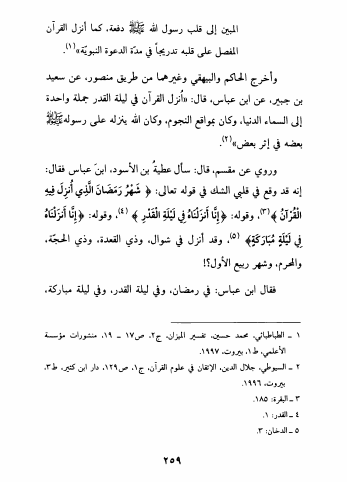 المبين إلى قلب رسول الله ﷺ دفعة، كما أنزل القرآن
المفصل على قلبه تدريجاً في مدّة الدعوة النبويّة»(١).
وأخرج الحاكم والبيهقي وغيرهما من طريق منصور، عن سعيد
بن جبير، عن ابن عباس، قال: «أُنزل القرآن في ليلة القدر جملة واحدة
إلى السماء الدنيا، وكان بمواقع النجوم، وكان الله ينزله على رسوله ﷺ
بعضه في إثر بعض»(٢).
وروي عن مقسم، قال: سأل عطيةُ بن الأسود، ابنَ عباس فقال:
إنه قد وقع في قلبي الشك في قوله تعالى: ﴿ شَهْرُ رَمَضَانَ الَّذِي أُنزِلَ فِيهِ
الْقُرْآنُ ﴾(٣)، وقوله: ﴿إِنَّا أَنزَلْنَاهُ فِي لَيْلَةِ الْقَدْرِ ﴾(٤)، وقوله: ﴿إِنَّا أَنزَلْنَاهُ
فِي لَيْلَةٍ مُبَارَكَةٍ﴾ (٥)، وقد أنزل في شوال، وذي القعدة، وذي الحجّة،
والمحرم، وشهر ربيع الأول؟!
فقال ابن عباس: في رمضان، وفي ليلة القدر، وفي ليلة مباركة،
١ ــ الطباطبائي، محمد حسين، تفسير الميزان، ج٢، ص١٧ ــ ١٩، منشورات مؤسسة
الأعلمي، ط١، بيروت، ١٩٩٧.
٢ ــ السيوطي، جلال الدين، الإتقان في علوم القرآن، ج١، ص١٢٩، دار ابن كثير، ط٣،
بيروت، ١٩٩٦.
٣ ــ البقرة: ١٨٥.
٤ ــ القدر: ١.
٥ ــ الدخان: ٣.
٢٥٩